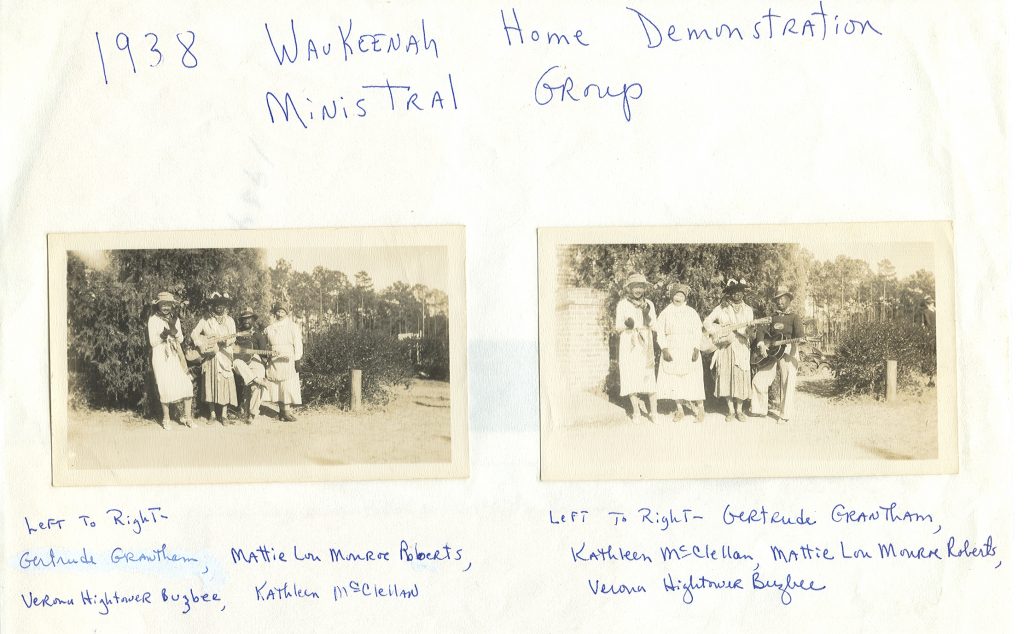 1938 Waukeenah Home Demonstration
Ministral Group
Left To Right-
Gertrude Grantham, Mattie Lou Monroe Roberts,
Verona Hightower Buzbee, Kathleen McClellan
Left To Right- Gertrude Grantham,
Kathleen McClellan, Mattie Lou Monroe Roberts,
Verona Hightower Buzbee